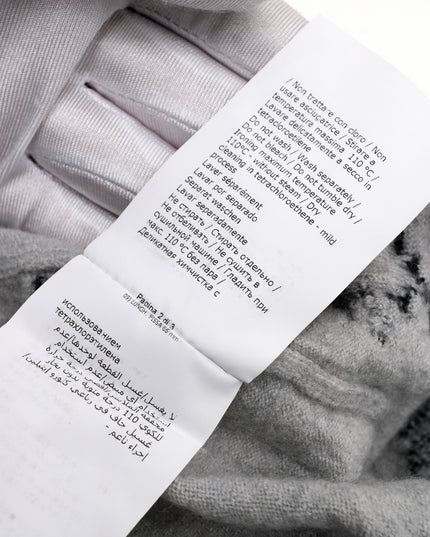 / Non trattare con cloro / Non
usare asciucatrice / Stirare a
temperatura massima, 110 °C,
Lavare delicatamente a secco in
tetracloroetilene
Do not wash / Wash separately /
Do not bleach / Do not tumble dry /
Ironing maximum temperature
110ºC - without steam / Dry
cleaning in tetrachloroethene - mild
process
Laver séparément
Lavar por separado
Separat waschen
Lavar separadamente
Не стирать / Стирать отдельно /
Не отбеливать / Не сушить в
сушильной машине / Гладить при
макс. 110 ºC без пара /
Деликатная химчистка с
Pagina 2 di 3
использованием
тетрахлорэтилена
لا يغسل/غسل القطعة لوحدها/عدم
استخدام أي مبيض/عدم استخدام
مجففة الملابس/أقصى درجة حرارة
للكوي 110 درجة مئوية بدون بخار
غسيل جاف في رباعي كلورو إيثيلين/
إجراء ناعم -